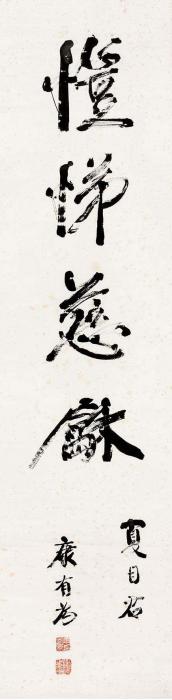 愷悌慈龢
夏目
康有為